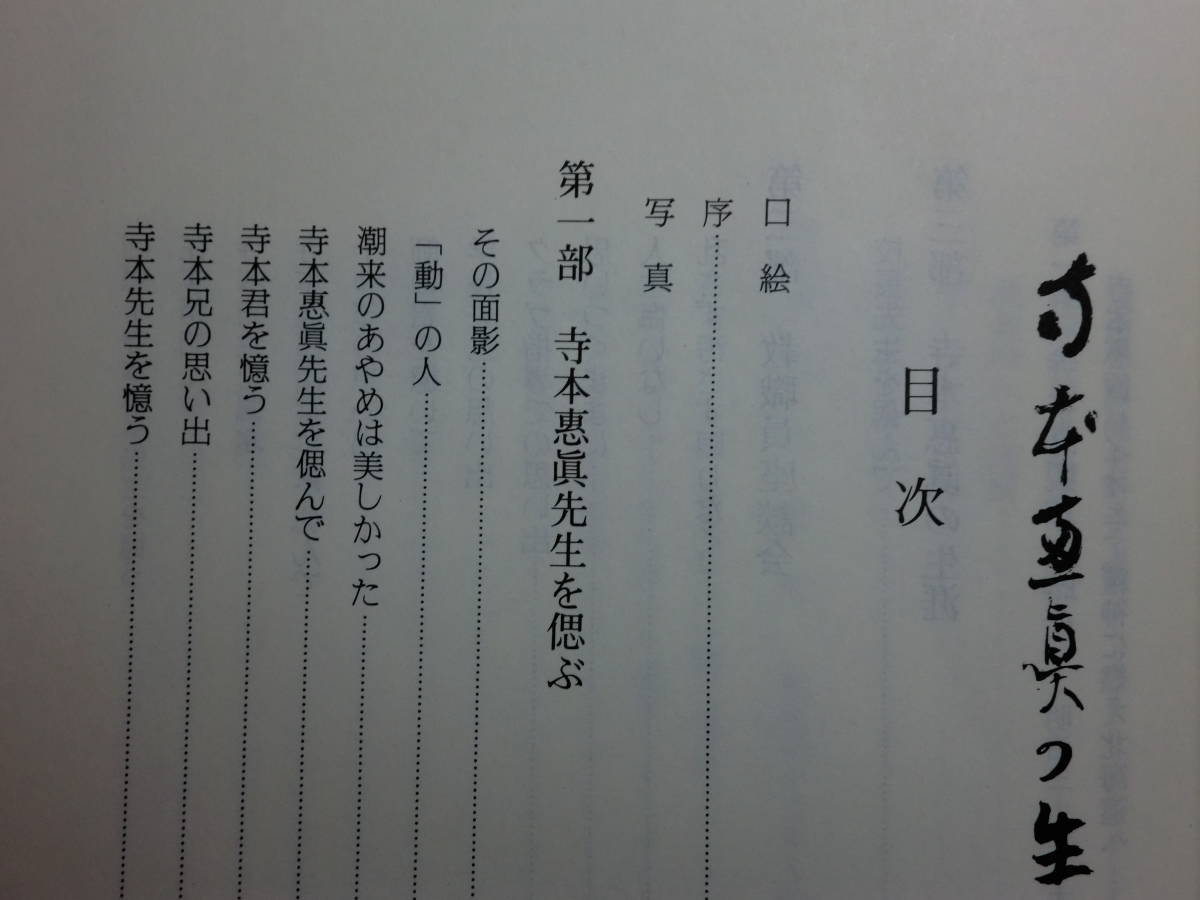 寺本惠眞の生
目次
口絵
序
写真
第一部　寺本惠眞先生を偲ぶ
その面影
「動」の人
潮来のあやめは美しかった
寺本惠眞先生を偲んで
寺本君を憶う
寺本兄の思い出
寺本先生を憶う